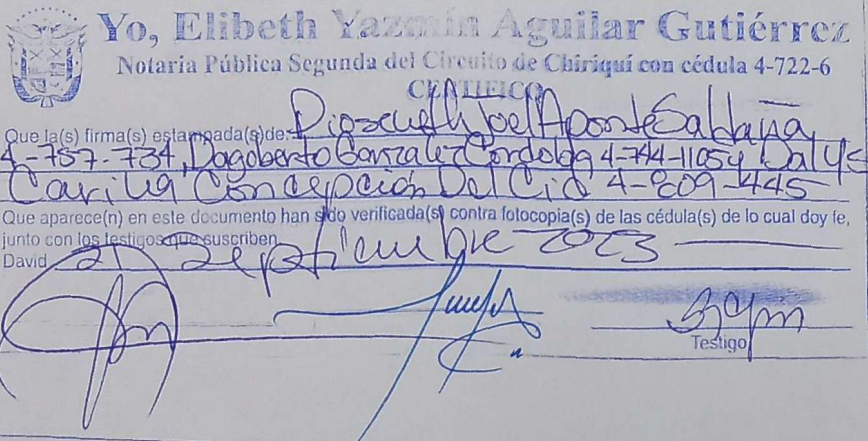 Yo, Elibeth Yazmín Aguilar Gutiérrez
Notaria Pública Segunda del Circuito de Chiriquí con cédula 4-722-6
CERTIFICO
Que la(s) firma(s) estampada(s)de: Joel Aponte Saldaña
4-757-734, Dagoberto González Córdoba 4-744-1105 y Dalys
Carilia Concepción Del Cid 4-809-445
Que aparece(n) en este documento han sido verificada(s) contra fotocopia(s) de las cédula(s) de lo cual doy fe,
junto con los testigos que suscriben
David 21 septiembre 2023
Testigo